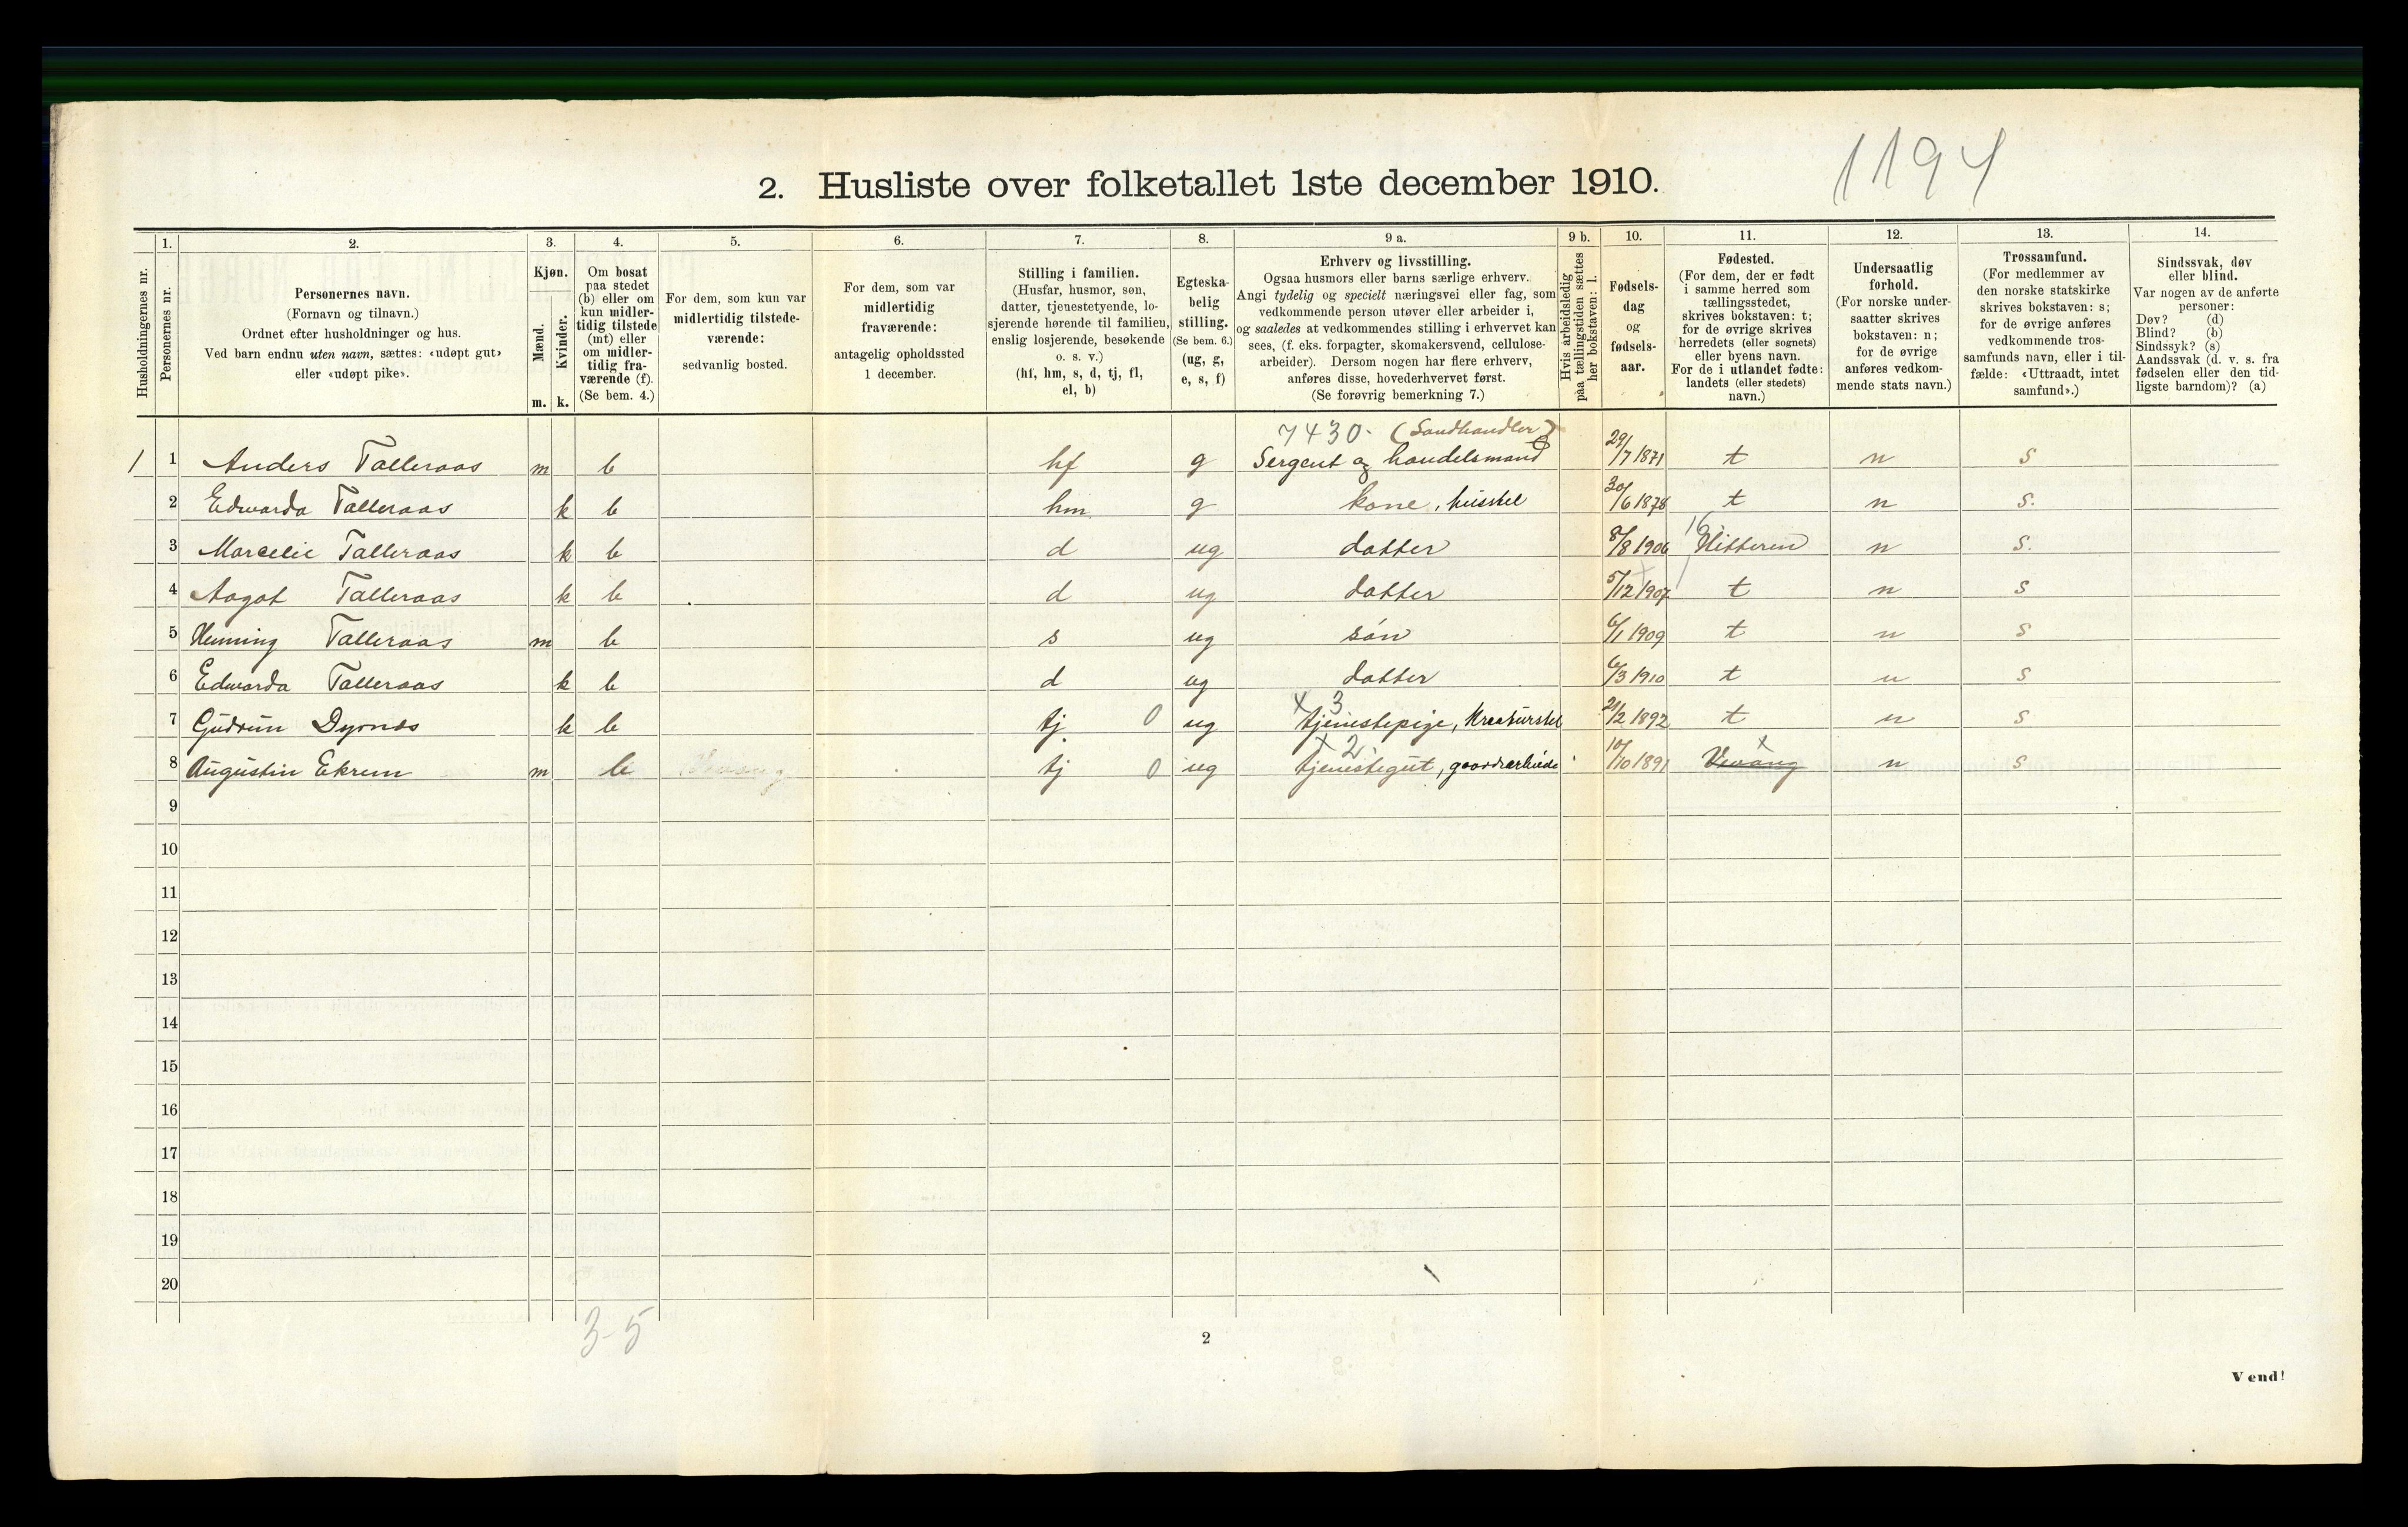 1194
2. Husliste over folketallet 1ste december 1910.
Husholdningernes nr.
1.
Personernes nr.
2.
Personernes navn.
(Fornavn og tilnavn.)
Ordnet efter husholdninger og hus.
Ved barn endnu uten navn, sættes: «udøpt gut»
eller «udøpt pike».
3.
Kjøn.
Mænd.
Kvinder.
m. k.
4.
Om bosat
paa stedet
(b) eller om
kun midler-
tidig tilstede
(mt) eller
om midler-
tidig fra-
værende (f).
(Se bem. 4.)
5.
For dem, som kun var
midlertidig tilstede-
værende:
sedvanlig bosted.
6.
For dem, som var
midlertidig
fraværende:
antagelig opholdssted
1 december.
7.
Stilling i familien.
(Husfar, husmor, søn,
datter, tjenestetyende, lo-
sjerende hørende til familien,
enslig losjerende, besøkende
o. s. v.)
(hf, hm, s, d, tj, fl,
el, b)
8.
Egteska-
belig
stilling.
(Se bem. 6.)
(ug, g,
e, s, f)
9 a.
Erhverv og livsstilling.
Ogsaa husmors eller barns særlige erhverv.
Angi tydelig og specielt næringsvei eller fag, som
vedkommende person utøver eller arbeider i,
og saaledes at vedkommendes stilling i erhvervet kan
sees, (f. eks. forpagter, skomakersvend, cellulose-
arbeider). Dersom nogen har flere erhverv,
anføres disse, hovederhvervet først.
(Se forøvrig bemerkning 7.)
9 b.
Hvis arbeidsledig
paa tællingstiden sættes
her bokstaven: l.
10.
Fødsels-
dag
og
fødsels-
aar.
11.
Fødested.
(For dem, der er født
i samme herred som
tællingsstedet,
skrives bokstaven: t;
for de øvrige skrives
herredets (eller sognets)
eller byens navn.
For de i utlandet fødte:
landets (eller stedets)
navn.)
12.
Undersaatlig
forhold.
(For norske under-
saatter skrives
bokstaven: n;
for de øvrige
anføres vedkom-
mende stats navn.)
13.
Trossamfund.
(For medlemmer av
den norske statskirke
skrives bokstaven: s;
for de øvrige anføres
vedkommende tros-
samfunds navn, eller i til-
fælde: «Uttraadt, intet
samfund».)
14.
Sindssvak, døv
eller blind.
Var nogen av de anførte
personer:
Døv? (d)
Blind? (b)
Sindssyk? (s)
Aandssvak (d. v. s. fra
fødselen eller den tid-
ligste barndom)? (a)
7430. (Landhandler)
1 1 Anders Talleraas m b hf g Sergent og handelsmand 29/7 1871 t n s
2 Edwarda Talleraas k b hm g kone, husstel 30/6 1878 t n s.
16
3 Marcelie Talleraas k b d ug datter 8/8 1906 Hitteren n s.
4 Aagot Talleraas k b d ug datter 5/12 1907 t n s
5 Henning Talleraas m b s ug søn 6/1 1909 t n s
6 Edwarda Talleraas k b d ug datter 6/3 1910 t n s
x 3
7 Gudrun Dyrnes k b tj 0 ug tjenestepige, Kreaturstel 21/2 1892 t n s
x 2 x
8 Augustin Ekrem m b tj 0 ug tjenestegut, gaardsarbeide 10/10 1891 Vevang n s
9
10
11
12
13
14
15
16
17
18
19
20
3-5
2
Vend!